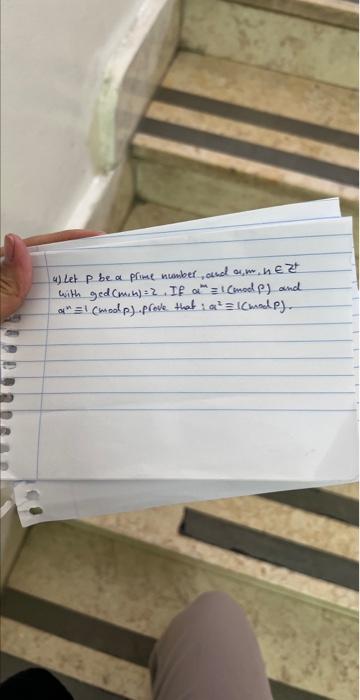 4) Let P be a prime number, and a,m,n ∈ Z⁺
with gcd(m,n)=2. If aᵐ ≡ 1 (mod p) and
aⁿ ≡ 1 (mod p). prove that : a² ≡ 1 (mod p).